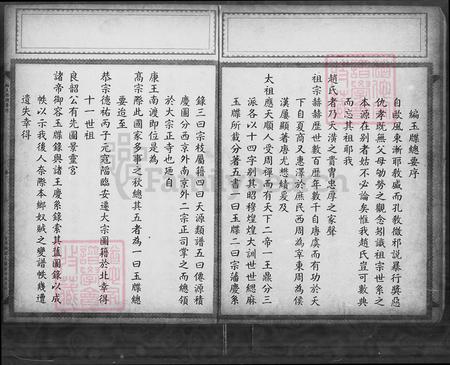 編玉牒總要序
自歐風東漸耶教盛而孔教微邪說暴行獎惡
仇孝既無父母劬勞之觀念矧識祖宗世系之
本源在別者姑不必論矣惟我趙氏豈可數典
而忘其祖耶我
趙氏者乃天潢之貴胄忠厚之家聲
祖宗赫赫歷世數百歷年數千自唐虞而有功於天
下自夏商又惠澤於庶民西周為京東周為侯
漢廉顯著唐尤懋績爰及
太祖應天順人受周禪而有天下二帝一王鼎分三
派各以十四字別其昭穆煌煌大訓世世總麻
玉牒所載分著五書一曰玉牒二曰宗藩慶系
錄三曰宗枝屬籍四曰天源類譜五曰僊源積
慶圖分西京外南京外二宗正司掌之而總領
於大宗正寺也延自
康王南渡即位是為
高宗際此國家多事之秋總其五者為一曰玉牒總
要迨至
恭宗德祐丙子元寇陷臨安遷大宗圖籍於北幸得
十一世祖
良韶公有先圖景靈宮
諸帝御容玉牒錄與諸王慶系錄索其舊圖錄以成
帙以示我後人奈際本鄉奴賊之變譜帙幾遭
遺失幸得